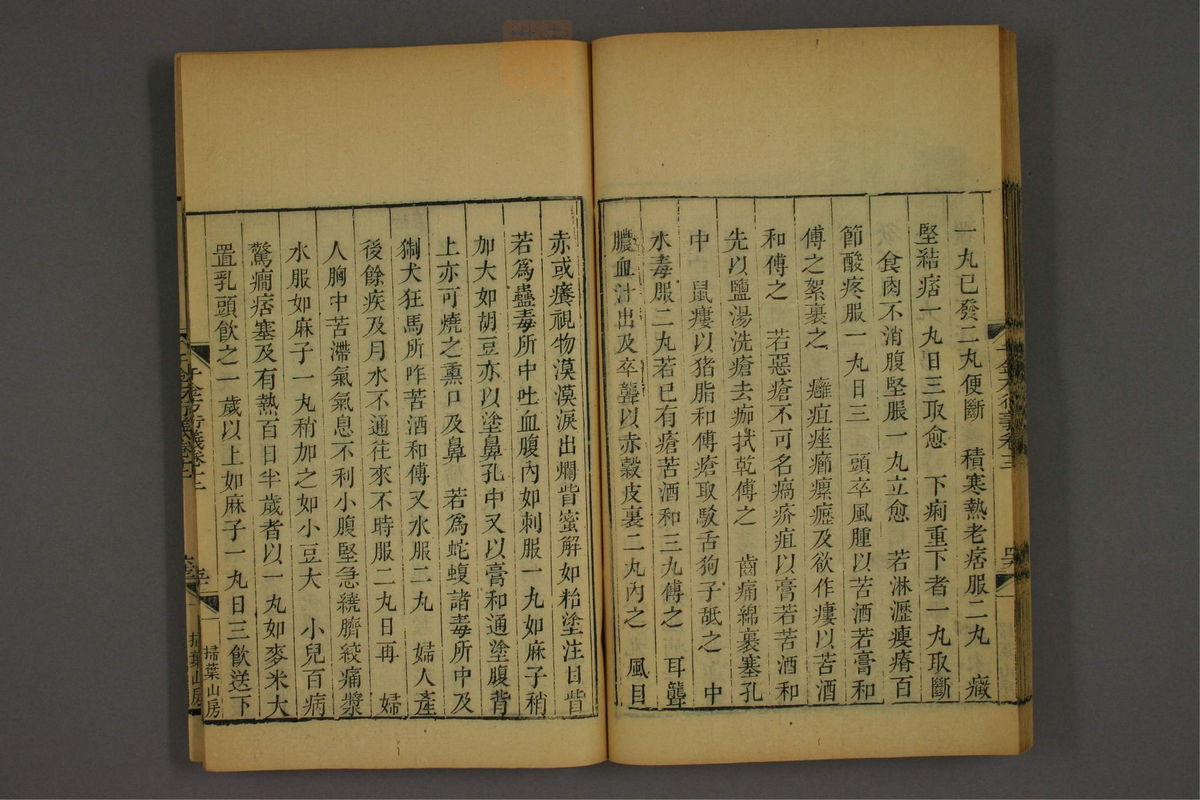 一丸已發二丸便斷　積寒熱老痞服二丸　癥
堅結痞一丸日三取愈　下痢重下者一丸取斷
食肉不消腹堅脹一丸立愈　若淋瀝瘦瘠百
節酸疼服一丸日三　頭卒風腫以苦酒若膏和
傅之絮裹之　癰疽痤癤瘰癧及欲作瘻以苦酒
和傅之　若惡瘡不可名瘑疥疽以膏若苦酒和
先以鹽湯洗瘡去痂拭乾傅之　齒痛綿裹塞孔
中　鼠瘻以猪脂和傅瘡取駮舌狗子舐之　中
水毒服二丸若已有瘡苦酒和三丸傅之　耳聾
膿血汁出及卒聾以赤穀皮裹二丸內之　風目
赤或癢視物漠漠淚出爛眥蜜解如粭塗注目眥
若爲蠱毒所中吐血腹內如刺服一丸如麻子稍
加大如胡豆亦以塗鼻孔中又以膏和通塗腹背
上亦可燒之熏口及鼻　若爲蛇蝮諸毒所中及
猘犬狂馬所咋苦酒和傅又水服二丸　婦人產
後餘疾及月水不通往來不時服二丸日再　婦
人胸中苦滯氣氣息不利小腹堅急繞臍絞痛漿
水服如麻子一丸稍加之如小豆大　小兒百病
驚癎痞塞及有熱百日半歲者以一丸如麥米大
置乳頭飲之一歲以上如麻子一丸日三飲送下
千金方衍義卷十二
掃葉山房
掃葉山房